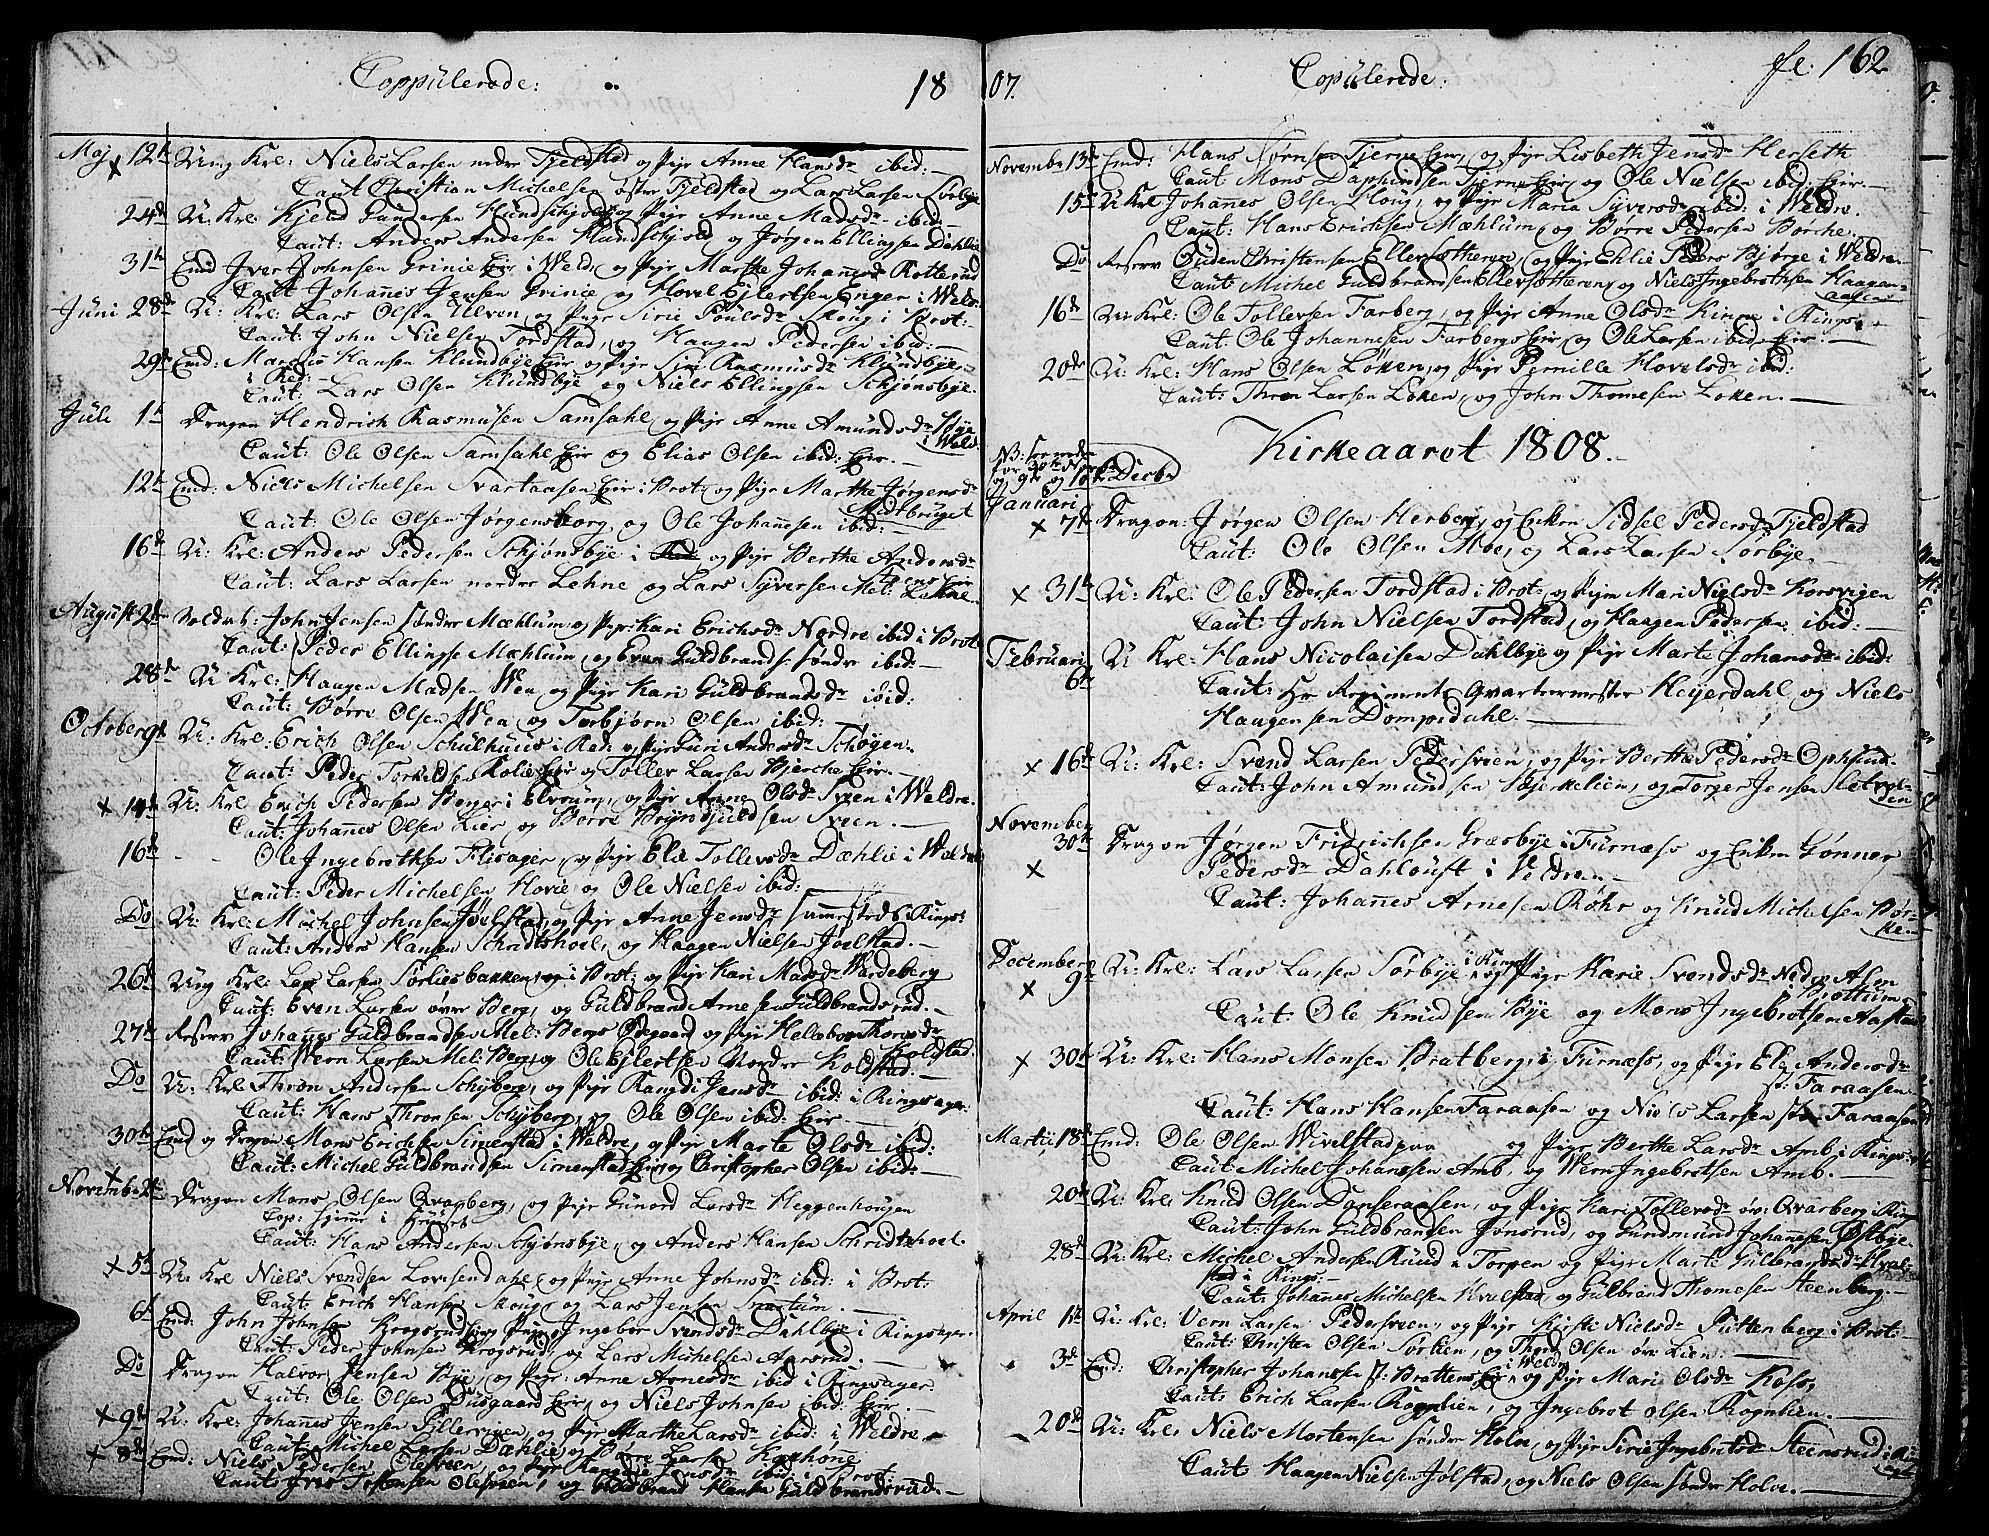 Coppülerede: 18
Maj 12te Ung Krl: Niels Larsen nedre Tjeldstad og Pige Anne Hansdr ibid:
Caut Christian Michelsen østre Tjeldstad og Lars Larsen Sørbye
24de U: Krl: Kjeld Gundersen Hundschjold og Pige Anne Madsdr ibid
Caut: Anders Andersen Hundschjold og Jørgen Ellingsen Dahlie
31te Emd Iver Johnsen Grinie Eier i Weld, og Pige Marthe Johannsdr Rotterud
Caut Johannes Jensen Grinie og Hovel Ejlertsen Enger i Weld:
Juni 28de U: Krl: Lars Olsen Ulven og Pige Sirie Poulsdr Skoug i Brot:
Caut: John Nielsen Tordstad, og Haagen Pedersen ibid:
29de Emd: Hansen Klundbye Eier og Pige Siri Rasmusdr Klundbye,
i Red:
Caut: Lars Olsen Klundbye og Niels Ellingsen Schjønsbye.
Juli 1te Dragon Hendrich Rasmusen Samsahl og Pige Anne Amundsdr Bye
i Weld.
Caut: Ole Olsen Samsahl Eier og Elias Olsen ibid: Eier.
12te Emd: Niels Michelsen Svartaasen Eier i Brot og Pige Marthe Jørgensdr
Midtbruget
Caut: Ole Olsen Jørgensborg, og Ole Johannesen ibid:
16de U: Krl: Anders Pedersen Schjønsbye i Red: og Pige Berthe Andersdr
Caut: Lars Larsen nordre Lehne og Lars Syversen Mel: Lehne.
August 2de Soldat: John Jensen søndre Mæhlum og Pige: Kari Erichsdr Nordre ibid i Brot
Caut: Peder Ellingse Mæhlum, og Even Guldbrands: søndre ibid:
28de U Krl: Haagen Madsen Wea og Pige Kari Guldbrandsdr ibid:
Caut: Børre Olsen Wea og Torbjørn Olsen ibid:
October 9de U: Krl: Erich Olsen Schulhuus i Red: og Pige Guri Andersdr Schøyen
Caut: Peder Torkelds: Kolie Eier og Toller Larsen Bjerche Eier.
× 14de U: Krl Erich Pedersen Berger i Elvrum, og Pige Anne Olsdr Sveen i Weldre.
Caut: Johannes Olsen Lier og Børre Bryndjuldsen Sveen.
16de Ole Ingebrethsen Flisager, og Pige Elie Tollevsdr Dæhlie i Weldre
Caut: Peder Michelsen Hovie og Ole Nielsen ibid:
Do U: Krl: Michel Johnsen Joelstad, og Pige Anne Jensdr Rings:
Caut: Anders Hansen Schridtshoel, og Haagen Nielsen Joelstad.
26de Ung Krl: Lars Larsen Sørliesbakken i Brot: og Pige Kari Madsdr Wardeberg
Caut: Even Larsen øvre Berg, og Guldbrand Arnesen Guldbrandsrud.
27de Reserv Johannes Guldbrandsen Mel: Bergs Ødegaard og Pige Helleborr Thorsdr
Koldstad.
Caut: Wern Larsen Mel: Berg og Ole Ejlertsen Nordre Koldstad.
Do U: Krl Thron Andersen Schyberg, og Pige Rangdi Jensdr ibid: i Ringsager:
Caut: Hans Thronsen Schyberg og Ole Olsen ibid: Eier.
30te Emd og Dragon Mons Erichse Simenstad i Weldre, og Pige Marte Olsdr ibid:
Caut: Michel Guldbrandsen Simenstad Eier og Christopher Olsen ibid:
Novemb: 2de Dragon Mons Olsen Qvarberg, og Pige Gunord Larsdr Heggenhougen
Cop: hjemme i Huuset
Caut: Hans Andersen Schjønsbye, og Anders Hansen Schridtshoel.
× 5te U: Krl Niels Svendsen Lovisendahl og Pige Anne Johnsdr ibid: i Brot:
Caut: Erich Hansen Skoug og Lars Jensen Snartum.
6te Emd: John Johnsen Krogsrud Eier og Pige Ingebor Svendsdr Dahlbye i Ringsager:
Caut: Peder Johnsen Krogsrud, og Lars Michelsen Aarsrud.
Do Dragon Halvor Jensen Bye, og Pige: Anne Arnesdr ibid i Ringsager.
Caut: Ole Olsen Duegaard Eier, og Niels Johnsen ibid: Eier.
× 9de U: Krl: Johannes Jensen og Pige Marthe Larsdr ibid: i Weldre
Caut: Michel Larsen Dæhlie, og Børre Larsen
× 8de Emd: Niels Pedersen Olesveen, og Pige Jensdr ibid i Brot:
Caut: Iver Olesveen, og Guldbrand Hansen Guldbrandsrud.
07. Copülerede. fl. 162
Novembr 13de Emd: Hans Tjerne Eier, og Pige Lisbeth Jensdr Herseth
Caut: Mons Daphindsen Tjerne Eier og Ole Nielsen ibid: Eier.
15de U Krl Johanes Olsen Houg, og Pige Maria Syversdr ibid: i Weldre.
Caut: Hans Erichsen Mæhlum, og Børre Pedersen Borche.
Do Reserv Ouden Christensen Ellevsætteren, og Pige Ehlie Peders Bjørge i Weldre.
Caut: Michel Guldbrandsen Ellevsætteren, og Niels Ingebrethsen Haagan-
aagen
16de U: Krl: Ole Tollevsen Farberg, og Pige Anne Olsdr Ringe i Rings:
Caut: Ole Johannesen Farberg Eier og Ole Larsen ibid Eier:
20de U: Krl: Hans Olsen Løken, og Pige Pernille Hovelsdr ibid:
Caut: Thron Larsen Løken, og John Thomesen Løken.
Kirkeaaret 1808.
NB:
for 30te Nov:
og 9de og Decbr
Januari
× 7de Dragon: Jørgen Olsen Herberg, og Enken Sidsel Pedersdr Tjeldstad
Caut: Ole Olsen Moe, og Lars Larsen Sørbye
× 31te U: Krl: Ole Pedersen Tordstad i Brot: og Pige Mari Nielsdr Korsvigen
Caut: John Nielsen Tordstad, og Haagen Pedersen ibid:
Februari 6te U Krl: Hans Nicolaisen Dahlbye og Pige Marte Johansdr ibid:
Caut: Hr Regiments Qvartermester Heyerdahl og Niels
Haagensen Dompsdahl.
× 16de U: Krl: Svend Larsen Pedersveen, og Pige Berthe Pedersdr Ophuus.
Caut: John Amundsen Bjerkelien, og Torger Jensen Sletvol-
den
November
30te Dragon Jørgen Fridrichsen Græsbye i Furnæss og Enken Gønner
× Pedersdr Dahloust i Veldren
Caut: Johannes Arnesen Røhr og Knud Michelsen Bør-
ke
December
9de U: Krl: Lars Larsen Sørbye i Rings: og Pige Karie Svendsdr Nedre Alsen
× Brøttum
Caut: Ole Knudsen Bye og Mons Ingebrotsen Aasten
× 30te U: Krl: Hans Monsen Bratberg i Furnæss, og Pige Elj Andersdr
st: Faraasen
Caut: Hans Hansen Faraasen og Niels Larsen Faraasen
Martii 18de Emd: Ole Olsen Wivelstad og Pige Berthe Larsdr Amb i Rings:
Caut Michel Johannesen Amb, og Wern Ingebretsen Amb.
20de U: Krl: Knud Olsen Danseraasen, og Pige Kari Tollevsdr øv: Qvarberg i Ring
Caut: John Guldbransen Jønsrud, og Gundmund Johannesen Østbye.
28de U: Krl: Michel Andersen Ruud i Torpen og Pige Marte Gulbrandsdr Hvel-
stad i Rings:
Caut: Johanes Michelsen Hvelstad og Gulbrand Thomesen Steenberg.
April 1te U: Krl: Vern Larsen Pedersveen, og Pige Kirsti Nielsdr Puttenberg i Brot:
Caut: Christen Olsen Sørlien, og Thord Olsen øv: Lien:
3de Emd: Christopher Johansen Brottens Eier i Weldre og Pige Mari Olsdr Koss,
Caut: Erich Larsen Rognlien, og Ingebrot Olsen Rognlien.
20de U: Krl: Niels Mortensen søndre Holve, og Pige Sirie Ingebretsdr Steensrud i
Caut: Haagen Nielsen Jølstad, og Niels Olsen søndre Holve.